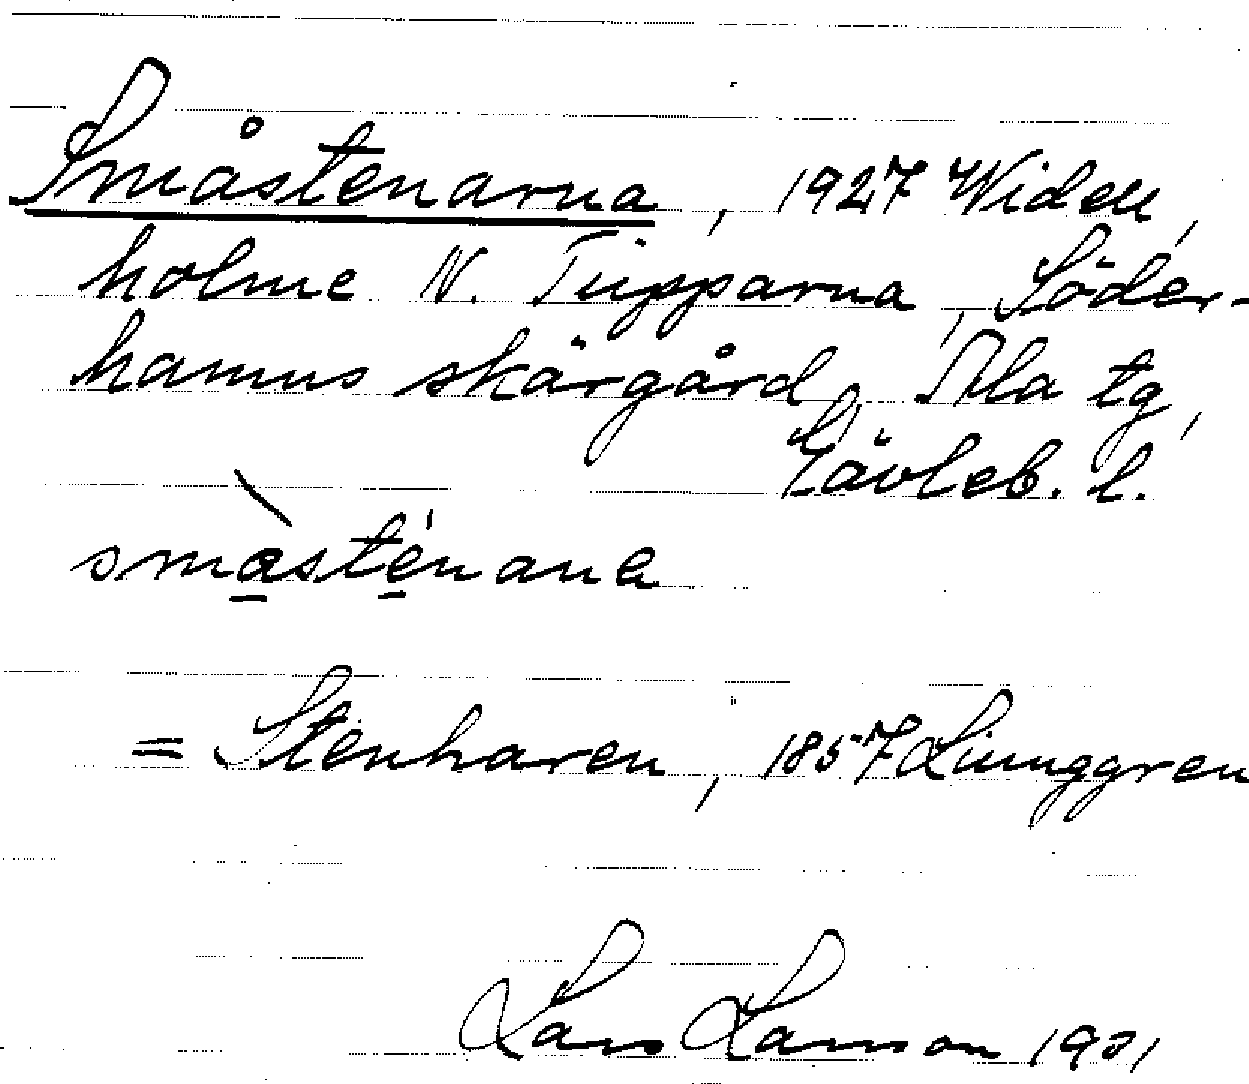 Småstenarna, 1927 Widell,
holme N. Tupparna, Söder-
hamns skärgård, Ala tg,
Gävleb. l.
smàsténana
= Stenharen, 1857 Ljunggren
Lars Larsson